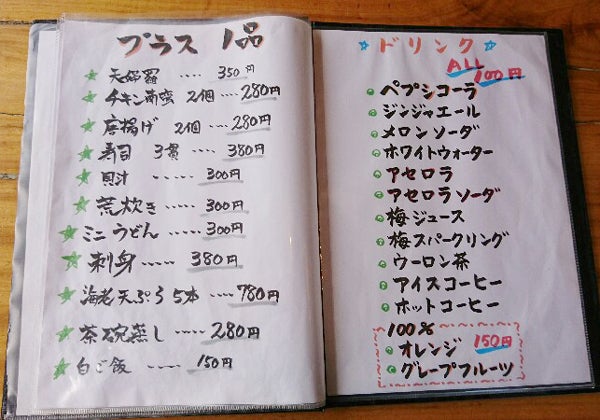 プラス 1品
天婦羅 ‥‥ 350円
チキン南蛮 2個 ‥‥ 280円
唐揚げ 2個 ‥‥ 280円
寿司 3貫 ‥‥ 380円
貝汁 ‥‥‥ 300円
荒炊き ‥‥‥ 300円
ミニうどん ‥‥‥ 300円
刺身 ‥‥‥ 380円
海老天ぷら 5本 ‥‥ 780円
茶碗蒸し ‥‥‥ 280円
白ご飯 ‥‥‥ 150円
ドリンク
ALL 100円
ペプシコーラ
ジンジャエール
メロンソーダ
ホワイトウォーター
アセロラ
アセロラソーダ
梅ジュース
梅スパークリング
ウーロン茶
アイスコーヒー
ホットコーヒー
100%
オレンジ 150円
グレープフルーツ